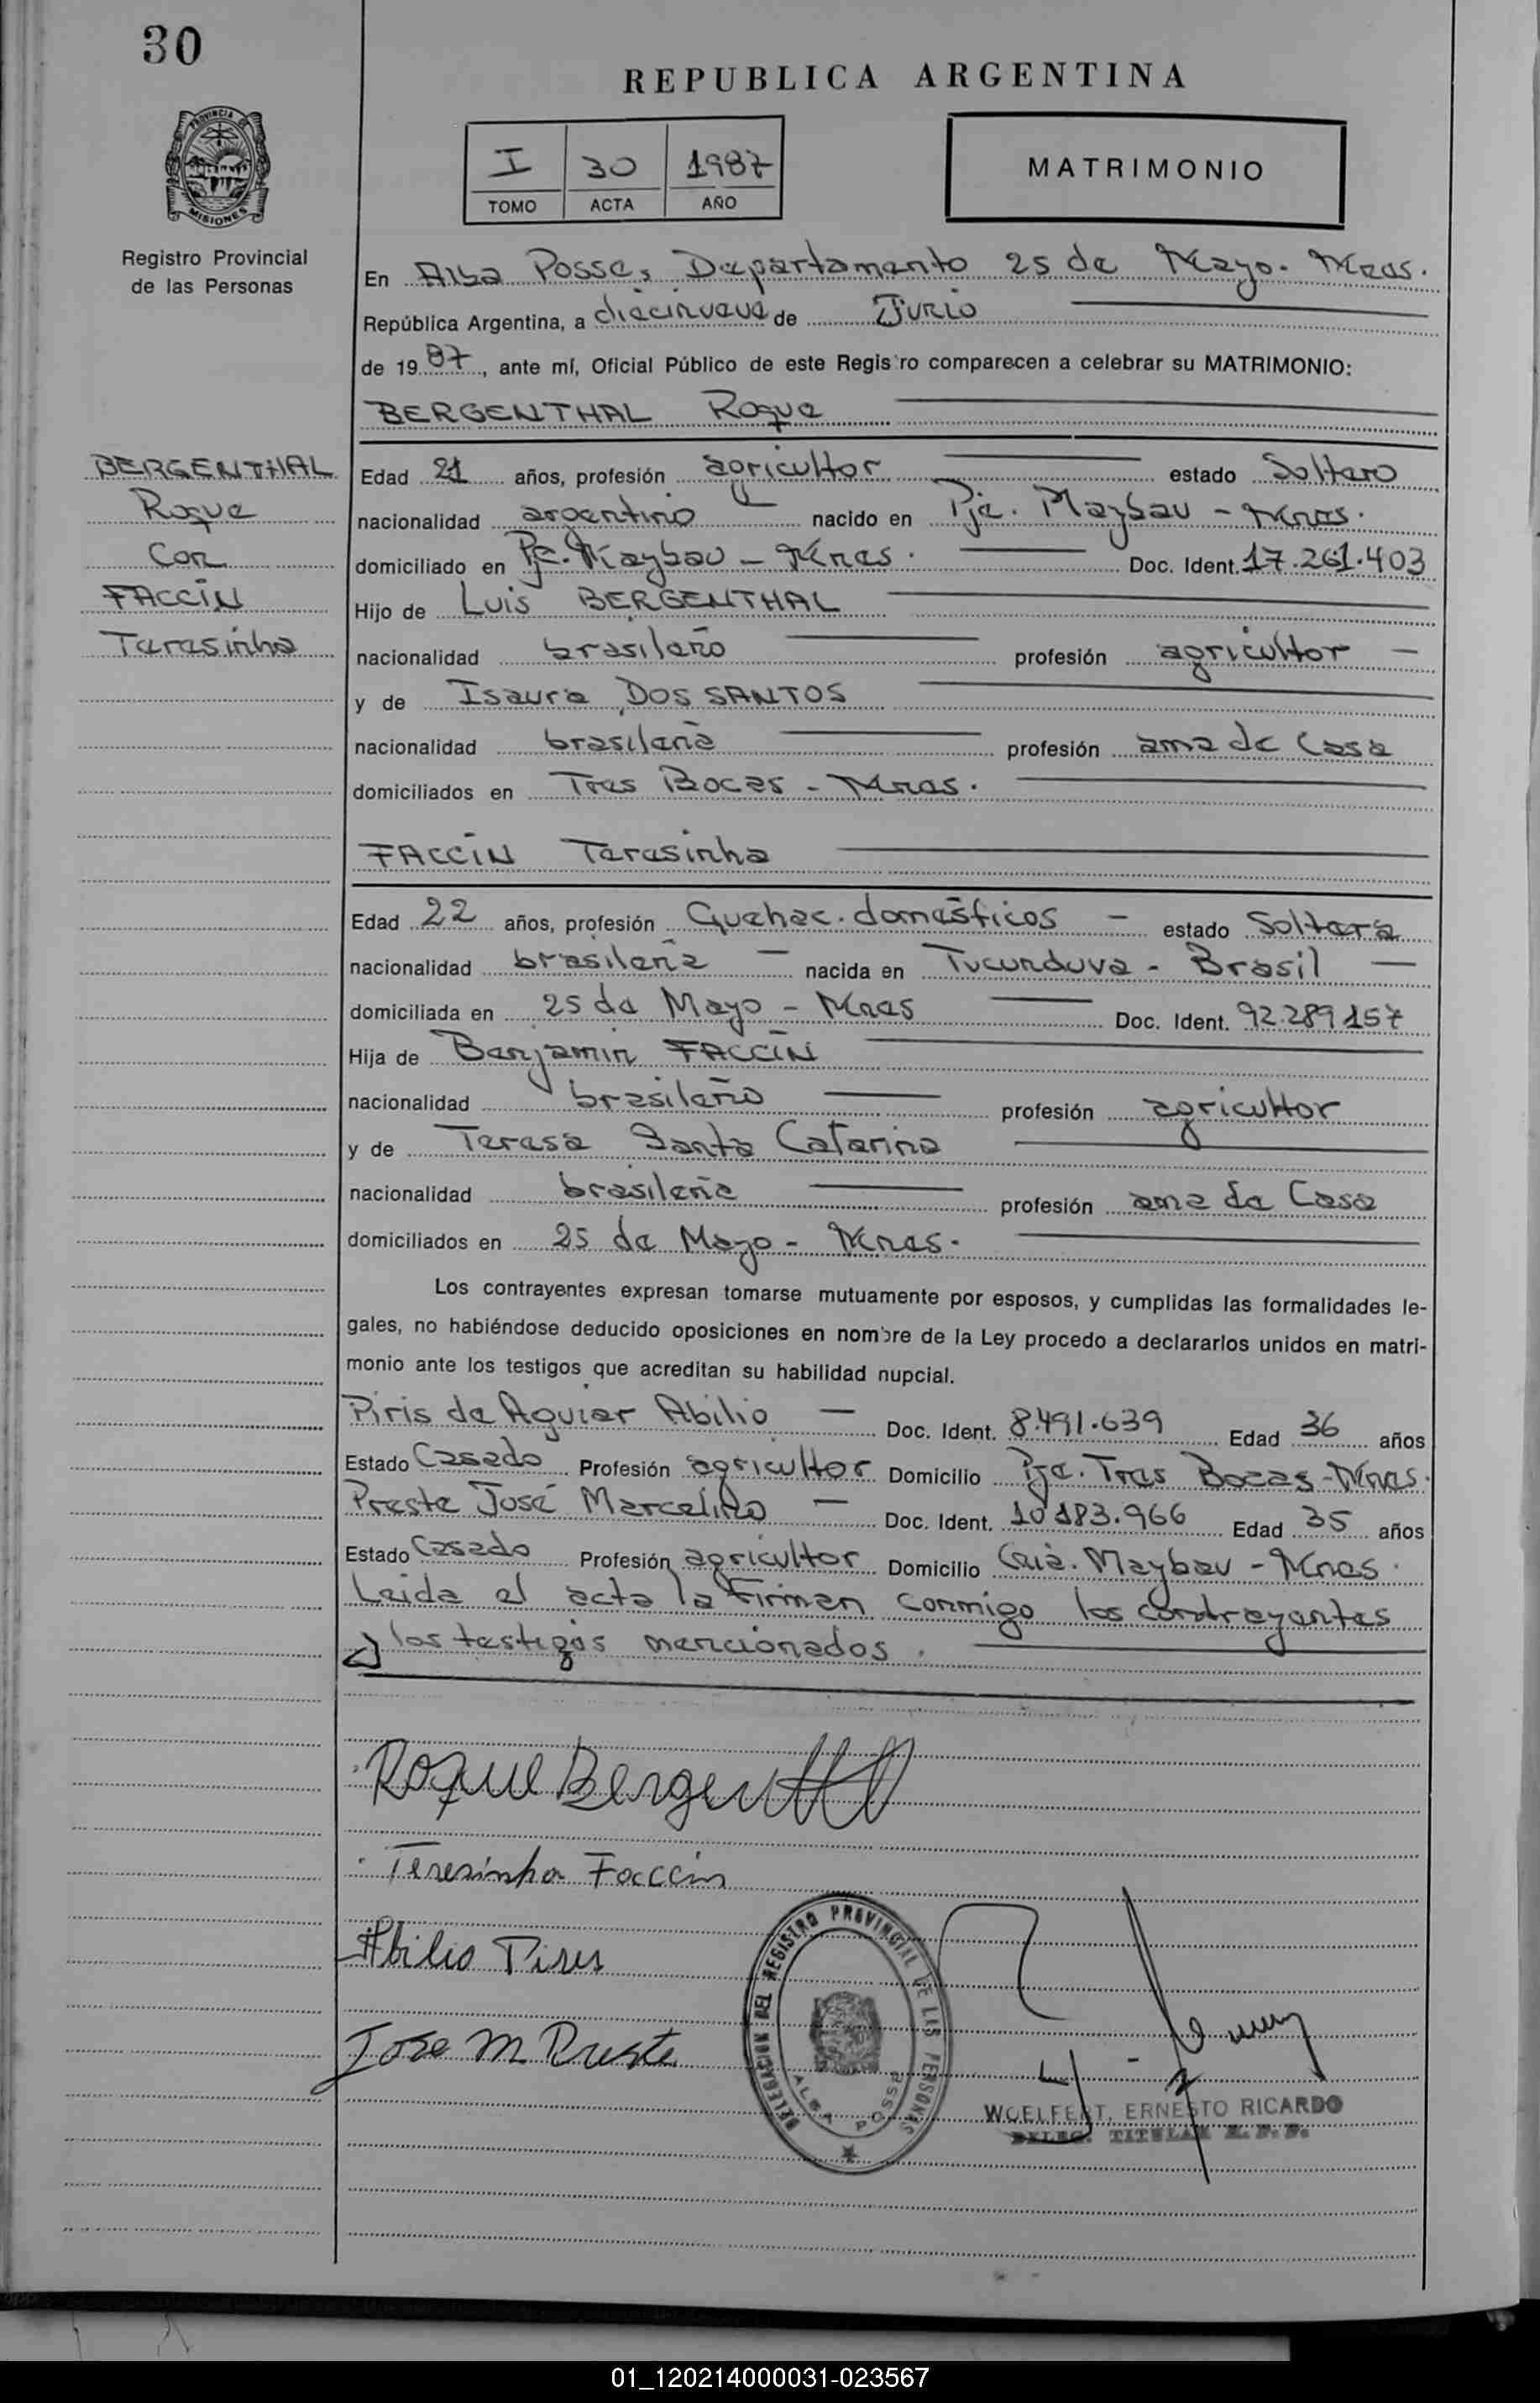 30
REPUBLICA ARGENTINA
PROVINCIA DE
MISIONES
Registro Provincial
de las Personas
I 30 1987
TOMO ACTA AÑO
MATRIMONIO
En Alba Posse, Departamento 25 de Mayo. Mnes.
República Argentina, a diecinueve de Junio
de 1987, ante mí, Oficial Público de este Registro comparecen a celebrar su MATRIMONIO:
BERGENTHAL Roque
BERGENTHAL
Roque
Con
FACCIN
Teresinha
Edad 21 años, profesión agricultor estado Soltero
nacionalidad argentino nacido en Pje. Maybau - Mnes.
domiciliado en Pje. Maybau - Mnes. Doc. Ident. 17.261.403
Hijo de Luis BERGENTHAL
nacionalidad brasileño profesión agricultor
y de Isaura DOS SANTOS
nacionalidad brasileña profesión ama de Casa
domiciliados en Tres Bocas - Mnes.
FACCIN Teresinha
Edad 22 años, profesión Quehac. domésticos estado Soltera
nacionalidad brasileña nacida en Tucunduva - Brasil
domiciliada en 25 de Mayo - Mnes Doc. Ident. 92.289.157
Hija de Benjamin FACCIN
nacionalidad brasileño profesión agricultor
y de Teresa Santa Catarina
nacionalidad brasileña profesión ama de Casa
domiciliados en 25 de Mayo - Mnes.
Los contrayentes expresan tomarse mutuamente por esposos, y cumplidas las formalidades le-
gales, no habiéndose deducido oposiciones en nombre de la Ley procedo a declararlos unidos en matri-
monio ante los testigos que acreditan su habilidad nupcial.
Piris de Aguiar Abilio Doc. Ident. 8.491.639 Edad 36 años
Estado Casado Profesión agricultor Domicilio Pje. Tres Bocas - Mnes.
Preste José Marcelino Doc. Ident. 10183.966 Edad 35 años
Estado Casado Profesión agricultor Domicilio Maybau - Mnes.
Leida el acta la Firman conmigo los contrayentes
y los testigos mencionados.
Roque Bergenthal
Teresinha Faccin
Abilio Pires
Jose M Preste
DELEGACION DEL REGISTRO PROVINCIAL DE LAS PERSONAS
ALBA POSSE
WOELFERT, ERNESTO RICARDO
DELEG. TITULAR R. P. P.
01_120214000031-023567